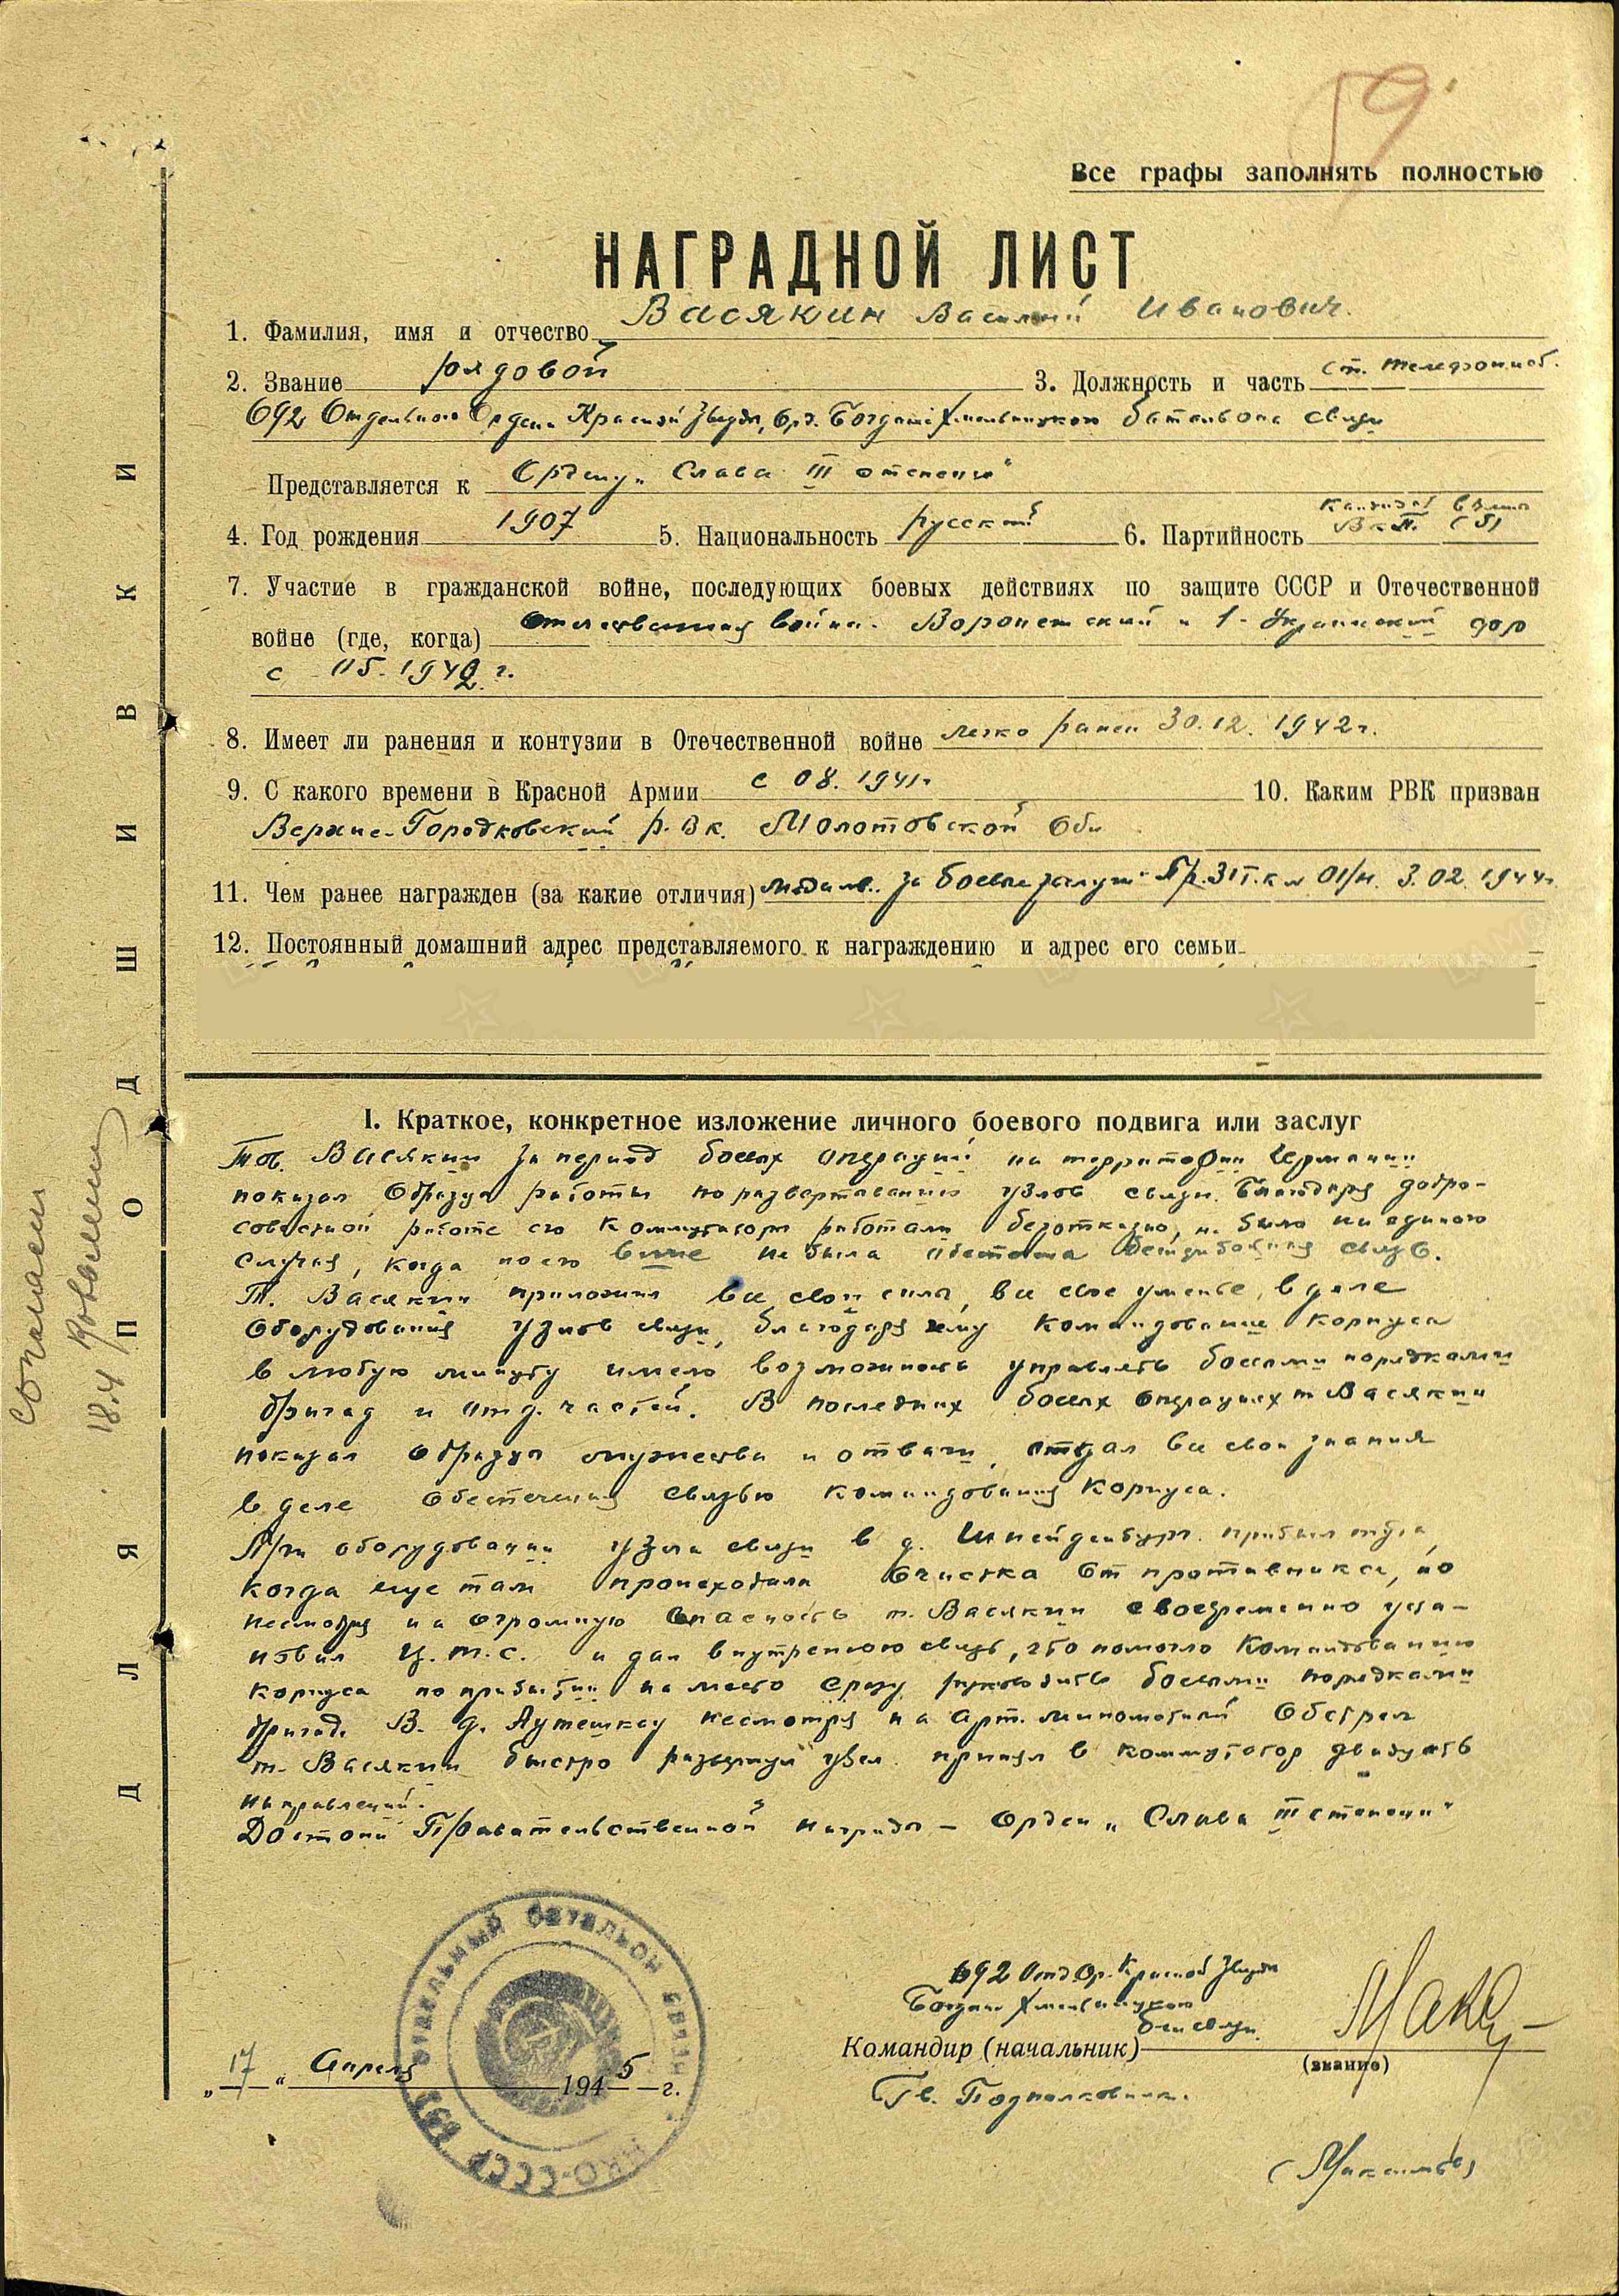 59
Все графы заполнять полностью
НАГРАДНОЙ ЛИСТ
1. Фамилия, имя и отчество Васякин Василий Иванович.
2. Звание рядовой 3. Должность и часть ст. телефонист.
692 Отдельного Ордена Красной Звезды, Орд. Богдана Хмельницкого батальона связи
Представляется к Ордену „Слава III степени“
4. Год рождения 1907 5. Национальность русский 6. Партийность кандидат в члены ВКП(б)
7. Участие в гражданской войне, последующих боевых действиях по защите СССР и Отечественной
войне (где, когда) Отечественная война. Воронежский и 1-Украинский фр
с 05.1942 г.
8. Имеет ли ранения и контузии в Отечественной войне легко ранен 30.12.1942г.
9. С какого времени в Красной Армии с 08.1941г 10. Каким РВК призван
Верхне-Городковский р.в.к. Молотовской Обл
11. Чем ранее награжден (за какие отличия) медаль „За боевые заслуги“ Пр. 31Т.к № 01/н. 3.02.1944г.
12. Постоянный домашний адрес представляемого к награждению и адрес его семьи
I. Краткое, конкретное изложение личного боевого подвига или заслуг
Тов. Васякин за период боевых операций на территории Германии
показал образцы работы по развертыванию узлов связи. Благодаря добро-
совестной работе его коммутаторы работали безотказно, не было ни единого
случая, когда по его вине не была обеспечена связь.
Т. Васякин приложил все свои силы, все свое уменье, в деле
оборудования узлов связи, благодаря чему командование корпуса
в любую минуту имело возможность управлять боевыми порядками
бригад и отд. частей. В последних боевых операциях т Васякин
показал образцы мужества и отваги, отдал все свои знания
в деле обеспечения связью командования корпуса.
При оборудовании узла связи в д. Шнейденбург прибыл туда,
когда еще там происходила очистка от противника, но
несмотря на огромную опасность т. Васякин своевременно уста-
новил Ц.т.с. и дал внутреннюю связь, что помогло командованию
корпуса по прибытии на место сразу руководить боевыми порядками
бригад. В д. Аутешкеу несмотря на арт. минометный обстрел
т. Васякин быстро развернул узел принял в коммутатор двадцать
направлений.
Достоин Правительственной награды – Орден „Слава III степени“
692 Отд. Ор. Красной Звезды
Богдана Хмельницкого
б-он связи
Командир (начальник)
(звание)
Гв. Подполковник.
(Максимов)
„17“ Апреля 1945 г.
ОТДЕЛЬНЫЙ БАТАЛЬОН СВЯЗИ НКО-СССР
ДЛЯ ПОДШИВКИ
Согласен
18.4